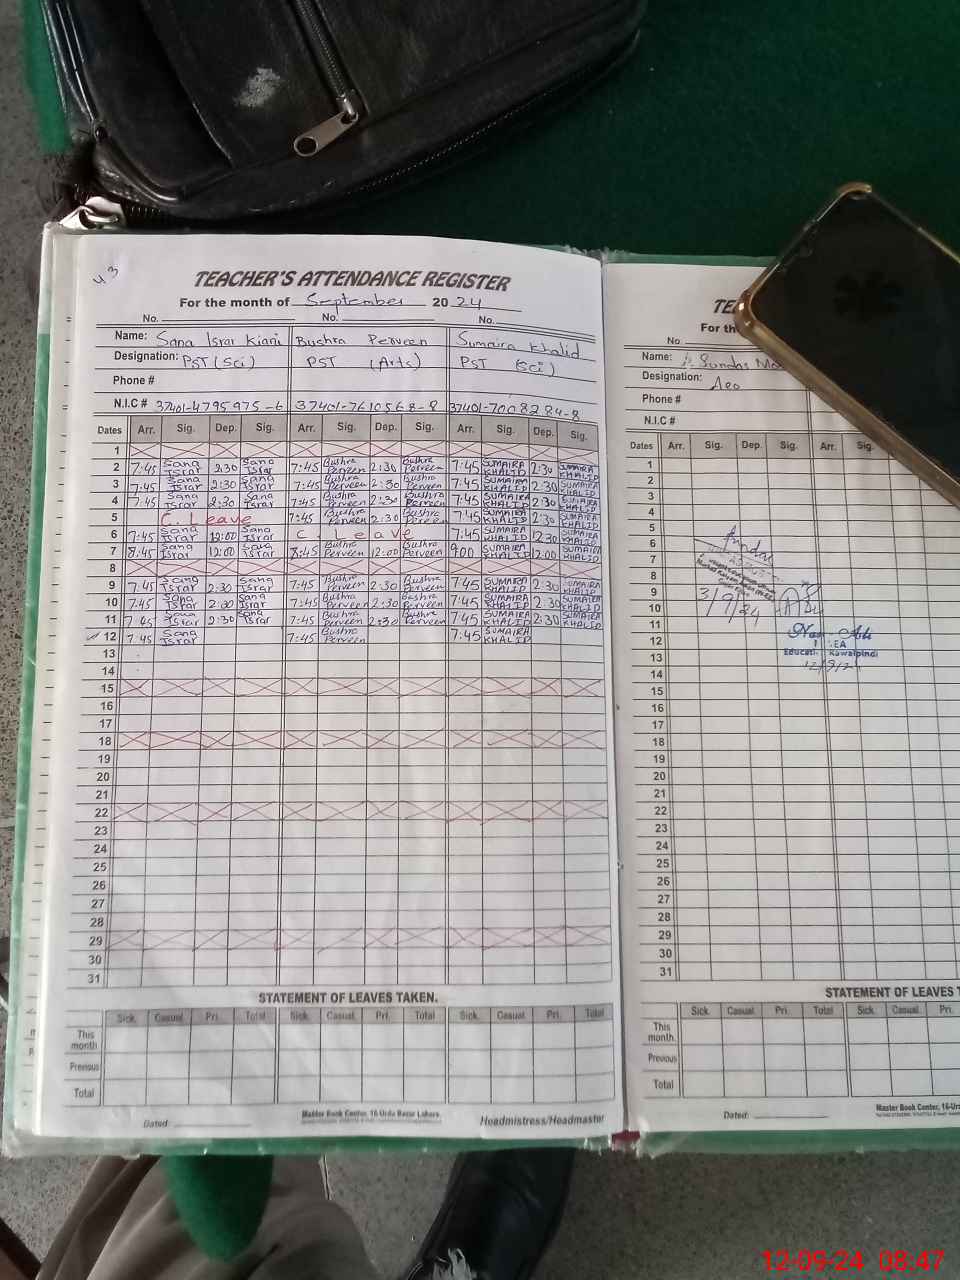 43
TEACHER'S ATTENDANCE REGISTER
For the month of September 2024
No. No. No.
Name: Sana Israr Kiani Bushra Perveen Sumaira Khalid
Designation: PST (Sci) PST (Arts) PST (Sci)
Phone #
N.I.C # 37401-4795975-6 37401-7610568-8 37401-7008284-8
Dates Arr. Sig. Dep. Sig. Arr. Sig. Dep. Sig. Arr. Sig. Dep. Sig.
1
2 7:45 Sana Israr 2:30 Sana Israr 7:45 Bushra Perveen 2:30 Bushra Perveen 7:45 SUMAIRA KHALID 2:30 SUMAIRA KHALID
3 7:45 Sana Israr 2:30 Sana Israr 7:45 Bushra Perveen 2:30 Bushra Perveen 7:45 SUMAIRA KHALID 2:30 SUMAIRA KHALID
4 7:45 Sana Israr 2:30 Sana Israr 7:45 Bushra Perveen 2:30 Bushra Perveen 7:45 SUMAIRA KHALID 2:30 SUMAIRA KHALID
5 C. Leave 7:45 Bushra Perveen 2:30 Bushra Perveen 7:45 SUMAIRA KHALID 2:30 SUMAIRA KHALID
6 7:45 Sana Israr 12:00 Sana Israr C. Leave 7:45 SUMAIRA KHALID 12:30 SUMAIRA KHALID
7 8:45 Sana Israr 12:00 Sana Israr 8:45 Bushra Perveen 12:00 Bushra Perveen 9:00 SUMAIRA KHALID 12:00 SUMAIRA KHALID
8
9 7:45 Sana Israr 2:30 Sana Israr 7:45 Bushra Perveen 2:30 Bushra Perveen 7:45 SUMAIRA KHALID 2:30 SUMAIRA KHALID
10 7:45 Sana Israr 2:30 Sana Israr 7:45 Bushra Perveen 2:30 Bushra Perveen 7:45 SUMAIRA KHALID 2:30 SUMAIRA KHALID
11 7:45 Sana Israr 2:30 Sana Israr 7:45 Bushra Perveen 2:30 Bushra Perveen 7:45 SUMAIRA KHALID 2:30 SUMAIRA KHALID
12 7:45 Sana Israr 7:45 Bushra Perveen 7:45 SUMAIRA KHALID
13
14
15
16
17
18
19
20
21
22
23
24
25
26
27
28
29
30
31
STATEMENT OF LEAVES TAKEN.
Sick. Casual. Pri. Total Sick. Casual. Pri. Total Sick. Casual. Pri. Total
This month
Previous
Total
Master Book Center, 16-Urdu Bazar Lahore.
Dated: Headmistress/Headmaster
TE
For th
No.
Name: Sundas
Designation: Aeo
Phone #
N.I.C #
Dates Arr. Sig. Dep. Sig. Arr. Sig.
1
2
3
4
5
6
7
8
9 3/9/24
10
11
12 EA
13 Educati Rawalpindi
12/9/2
14
15
16
17
18
19
20
21
22
23
24
25
26
27
28
29
30
31
STATEMENT OF LEAVES T
Sick. Casual Pri. Total Sick. Casual. Pri.
This month.
Previous
Total
Master Book Center, 16-Urd
Dated:
12-09-24 08:47